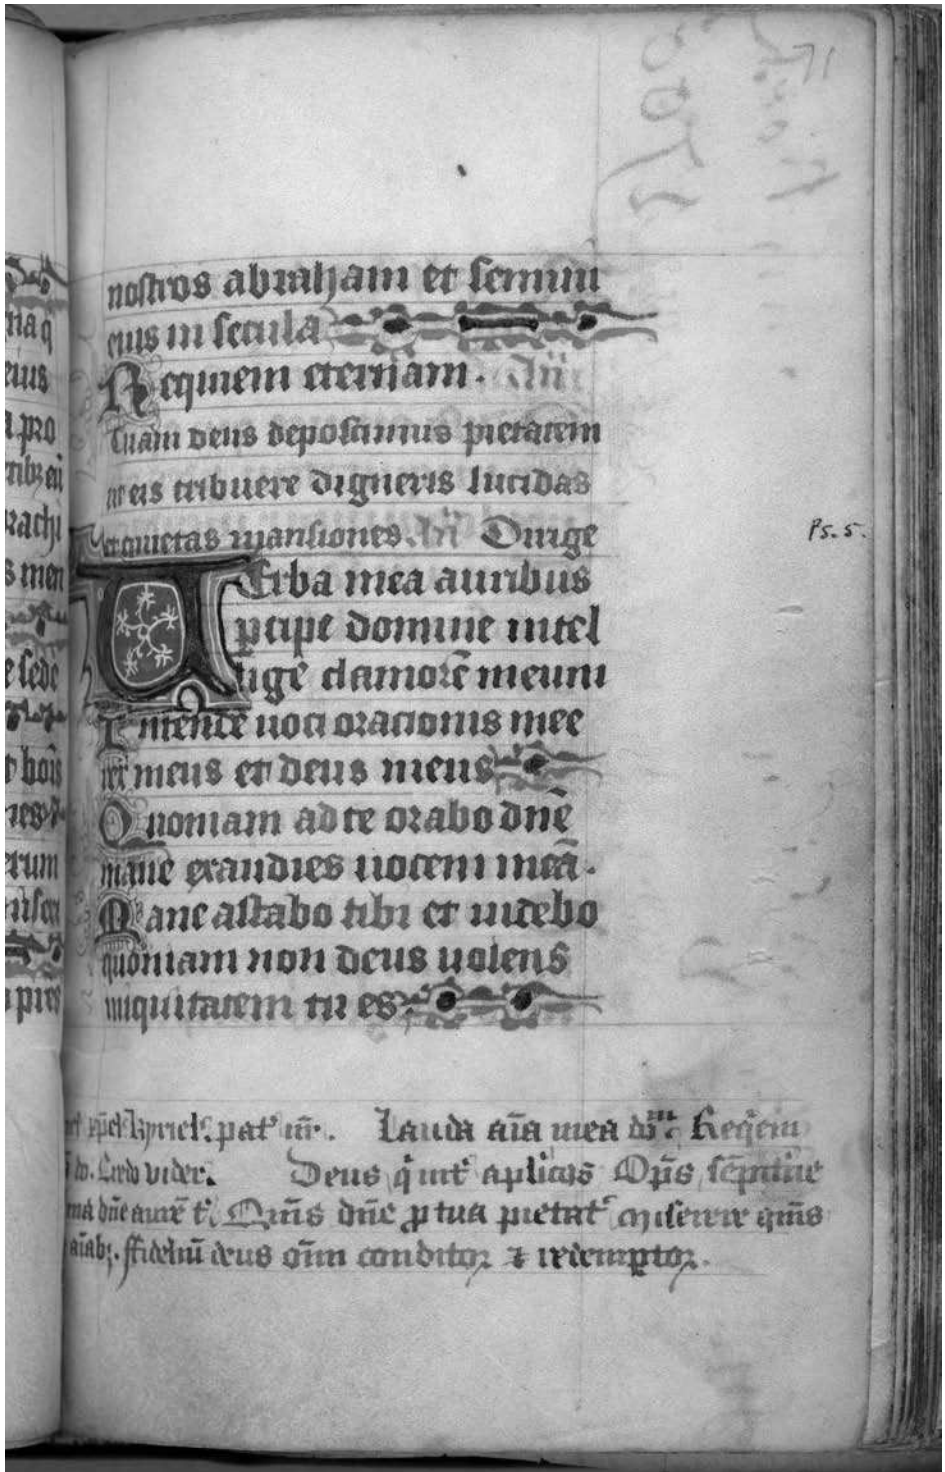 71
nostros abraham et semini
eius in secula
Requiem eternam. Añ
Tuam deus deposcimus pietatem
ut eis tribuere digneris lucidas
et quietas mansiones. Añ Dirige
Ps. 5.
Verba mea auribus
p̱cipe domine intel
lige clamorē meum
Intende uoci oracionis mee
rex meus et deus meus
Quoniam ad te orabo dn̄e
mane exaudies uocem meā.
Mane astabo tibi et uidebo
quoniam non deus uolens
iniquitatem tu es.
kyriel'. pat' nr̄. Lauda aīa mea Requiem
Credo videre. Deus q̄ int' aplicos Op̄s semp̄it̄ne
dn̄e aurē t'. Qms dn̄e ꝓ tua pietat' Miserere qms
aīabꝫ. ffideliū deus oīm conditor ⁊ redemptor.